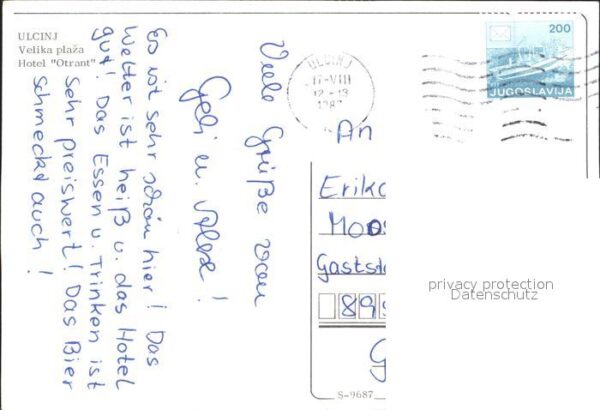 ULCINJ
Velika plaža
Hotel "Otrant"
Es ist sehr schön hier! Das
Wetter ist heiß u. das Hotel
gut! Das Essen u. Trinken ist
sehr preiswert! Das Bier
schmeckt auch!
Viele Grüße von
Geli u. Alex!
ULCINJ
17-VIII
12-13
200
JUGOSLAVIJA
An
Erika
Moos
Gastst
895
privacy protection
Datenschutz
S-9687